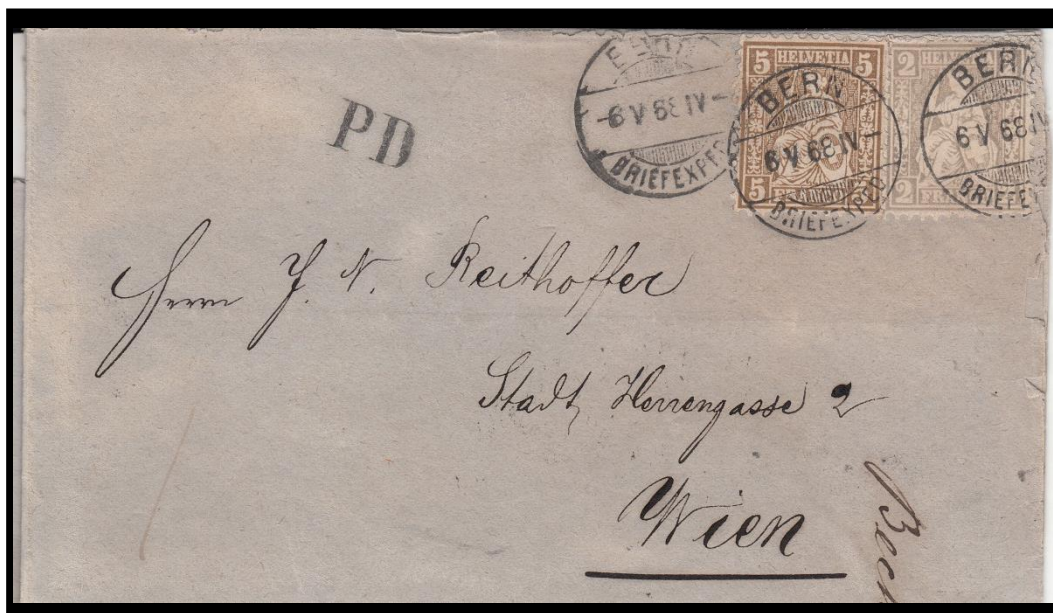 PD
-6 V 68 IV-
BRIEFEXPED
5 HELVETIA 5
5 5
BERN
6 V 68 IV-
BRIEFEXPED
2 HELVETIA
2 FR
BERN
6 V 68 IV
BRIEFEX
Herrn J. N. Reithoffer
Stadt, Herrengasse 2
Wien